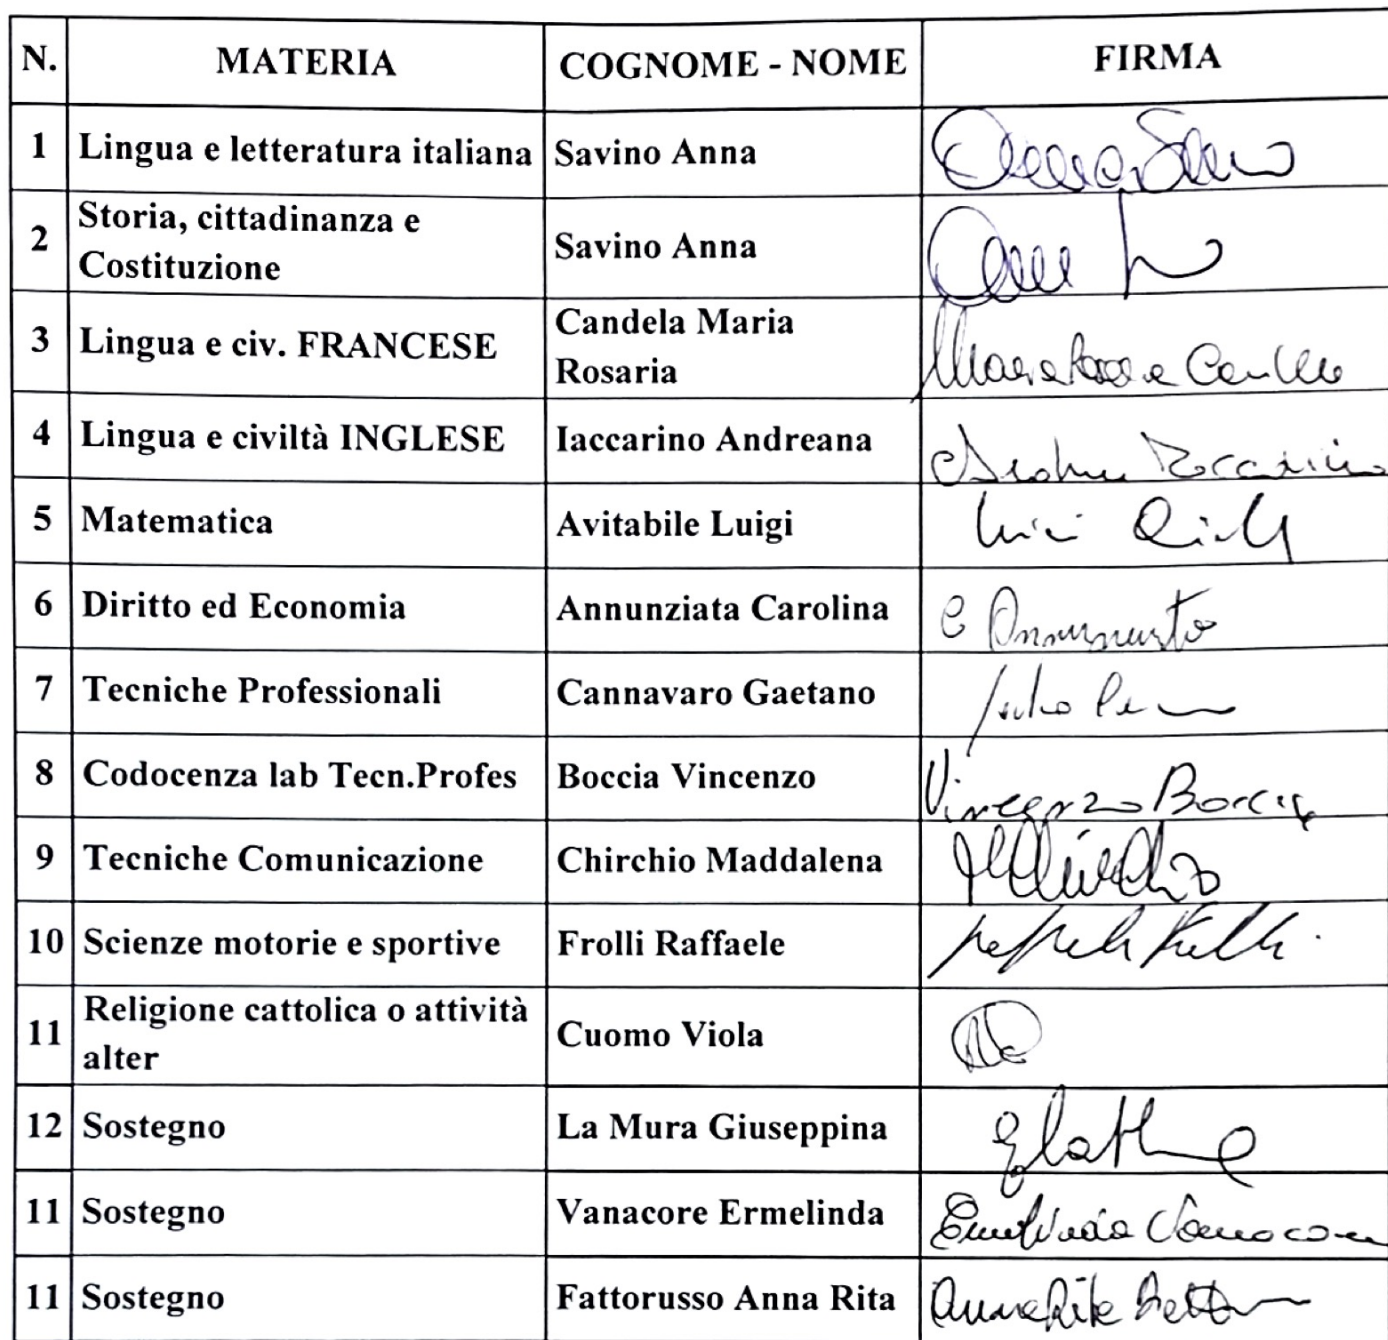 N. MATERIA COGNOME - NOME FIRMA
1 Lingua e letteratura italiana Savino Anna
2 Storia, cittadinanza e
Costituzione Savino Anna
3 Lingua e civ. FRANCESE Candela Maria
Rosaria
4 Lingua e civiltà INGLESE Iaccarino Andreana
5 Matematica Avitabile Luigi
6 Diritto ed Economia Annunziata Carolina
7 Tecniche Professionali Cannavaro Gaetano
8 Codocenza lab Tecn.Profes Boccia Vincenzo Vincenzo Boccia
9 Tecniche Comunicazione Chirchio Maddalena
10 Scienze motorie e sportive Frolli Raffaele
11 Religione cattolica o attività
alter Cuomo Viola
12 Sostegno La Mura Giuseppina
11 Sostegno Vanacore Ermelinda
11 Sostegno Fattorusso Anna Rita